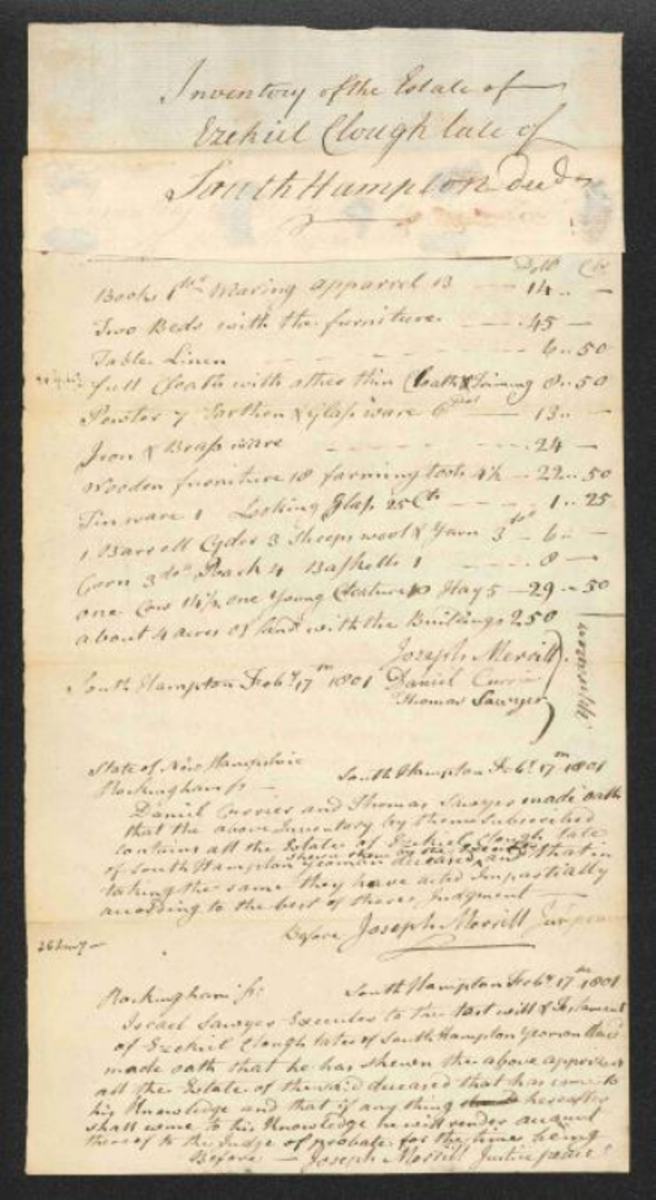 Inventory of the Estate of
Ezekiel Clough late of
South Hampton decd
Doll Cts
Books 1 Waring apparrel 13 14 .. —
Two Beds with the furniture 45 —
Table Linen 6 .. 50
full Cloath with other thin Cloath & Triming 8 .. 50
Pewter 7 Earthen & glass ware 6 13 .. —
Iron & Brass ware 24 —
Wooden furniture 18 farming tools 4½ — 22 .. 50
Tin ware 1 Looking glass 25 Cts 1 .. 25
1 Barrell Cyder 3 Sheeps wool & Yarn 3 — 6 .. —
Corn 3 4 Basketts 1 8 —
one Cow one Young Creature 10 Hay 5 — 29 .. 50
about 4 acres of land with the Buildings 250
Joseph Merrill
South Hampton Feby 17th 1801 Daniel Currier
Thomas Sawyer
State of New Hampshire
Rockingham ss — South Hampton Feby 17th 1801
Daniel Currier and Thomas Sawyer made oath
that the above Inventory by them subscribed
contains all the Estate of Ezekiel Clough late
shewn them by the
of South Hampton yeoman deceased and that in
taking the same they have acted Impartially
according to the best of theire Judgment —
Before Joseph Merrill
Rockingham ss: South Hampton Feby 17th 1801
Israel Sawyer Executor to the last will & Testament
of Ezekiel Clough late of South Hampton yeoman
made oath that he has shewn the above apprisers
all the Estate of the said deceased that has come to
his Knowledge and that if any thing hereafter
shall come to his Knowledge he will render account
thereof to the Judge of probate for the time being
Before — Joseph Merrill Justice peace